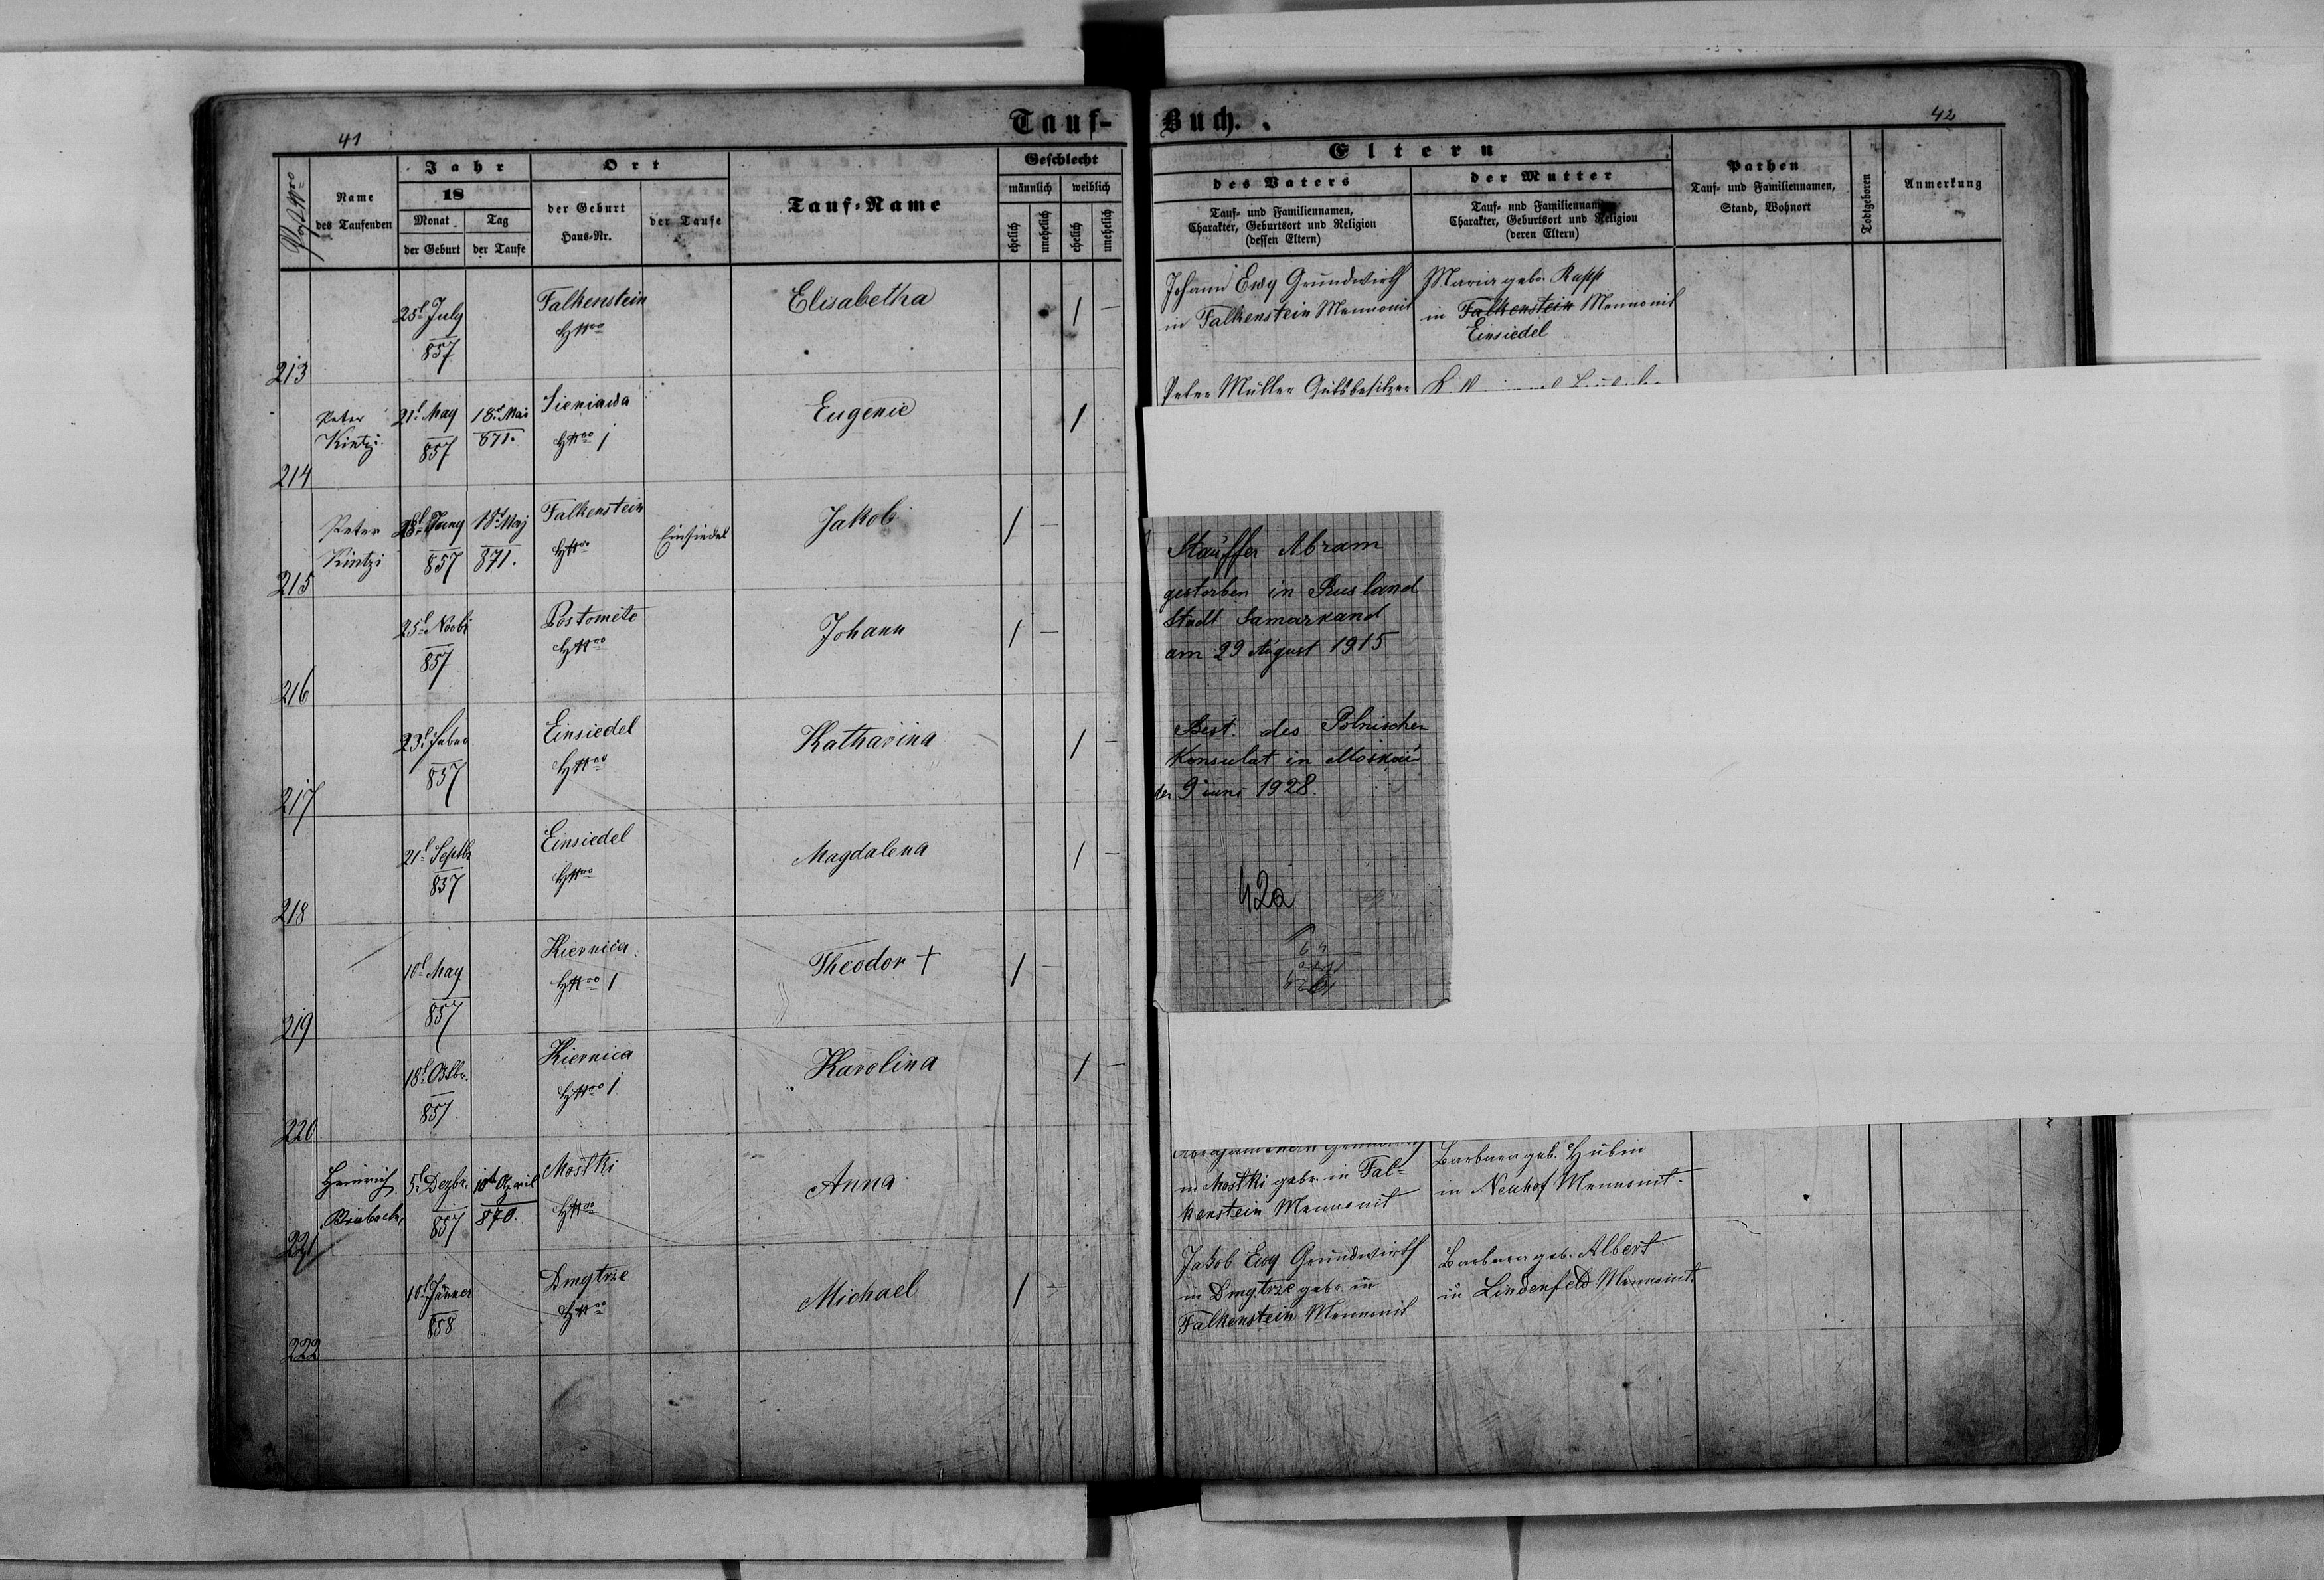 41
Tauf-
Name
des Taufenden
Jahr
18
Monat
Tag
der Geburt
der Taufe
Ort
der Geburt
Haus-Nr.
der Taufe
Tauf-Name
Geschlecht
männlich
weiblich
ehelich
unehelich
ehelich
unehelich
213
25t July
857
Falkenstein
HNro
Elisabetha
1 —
214
Peter
Kintzi
21t May
857
18t Mai
871.
Sieniawa
HNro 1
Eugenie
1
215
Peter
Kintzi
857
18t Maj
871.
Falkenstein
HNro
Einsiedel
Jakob
1 —
216
25t Novbr
857
HNro
Johann
1 —
217
23t Febr
857
Einsiedel
HNro
Katharina
1 —
218
21t Septbr
857
Einsiedel
HNro
Magdalena
1 —
219
10t May
857
Kiernica
HNro 1
Theodor +
1 —
220
18t Octbr.
857
Kiernica
HNro 1
Karolina
1 —
221
Heinrich
5t Dezbr.
857
10t April
870.
Mostki
HNro
Anna
222
10t Jänner
858
Dmytrze
HNro
Michael
1 —
Buch.
42
Eltern
des Vaters
Tauf- und Familiennamen,
Charakter, Geburtsort und Religion
(dessen Eltern)
der Mutter
Tauf- und Familiennamen
Charakter, Geburtsort und Religion
(deren Eltern)
Pathen
Tauf- und Familiennamen,
Stand, Wohnort
Todtgeboren
Anmerkung
Johann Ewy Grundwirth
in Falkenstein Mennonit
Maria geb. Rupp
in Falkenstein Mennonit
Einsiedel
Peter Müller Gutsbesitzer
Stauffer Abram
gestorben in Rusland
Stadt Samarkand
am 29 August 1915
Best. des Polnischen
Konsulat in Moskau
den 9 iuni 1928.
42a
in Mostki geb. in Fal=
kenstein Mennonit
Barbara geb. Hubin
in Neuhof Mennonit.
Jakob Ewy Grundwirth
in Dmytrze geb. in
Falkenstein Mennonit
Barbara geb. Albert
in Lindenfeld Mennonit.